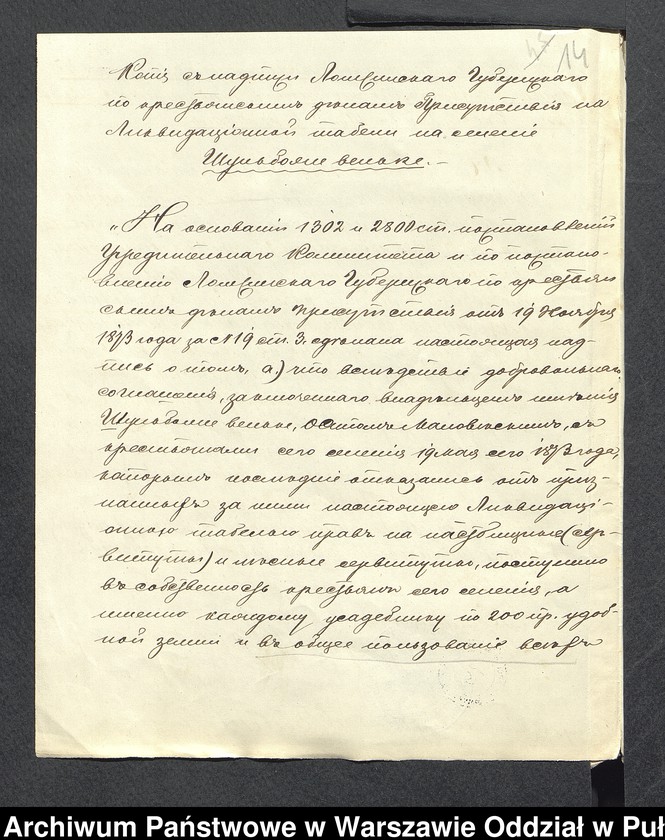 14
Копія съ надписи Ломжинскаго Губернскаго
по крестьянскимъ дѣламъ Присутствія на
Ликвидаціонной табели на селеніе
Шульбоже вельке.—
„На основаніи 1302 и 2800 ст. постановленій
Учредительнаго Комитета и по постано-
вленію Ломжинскаго Губернскаго по крестьян
скимъ дѣламъ Присутствія отъ 19 Ноября
1873 года за № 19 ст. 3. сдѣлана настоящая над-
пись о томъ, а.) что вслѣдствіе добровольнаго
соглашенія, заключеннаго владѣльцемъ имѣнія
Шульбоже вельке, съ
крестьянами сего селенія 19 мая сего 1873 года,
которымъ послѣдніе отказались отъ приз-
нанныхъ за ними настоящею Ликвидаці-
онною табелью правъ на пастбищные (сер-
витуты) и лѣсные сервитуты, поступило
въ собственность крестьянъ сего селенія, а
именно каждому усадебнику по 200 пр. удоб-
ной земли и въ общее пользованіе всѣхъ
Archiwum Państwowe w Warszawie Oddział w Puł